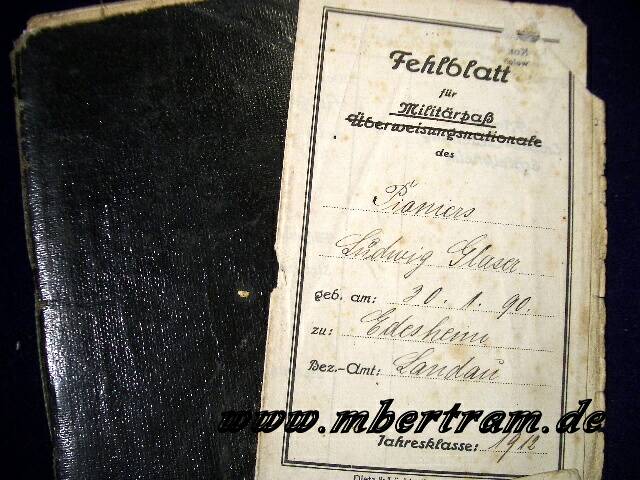 Fehlblatt
für
Militärpaß
Überweisungsnationale
des
Pioniers
Ludwig Glaser
geb. am: 30. 1. 90.
zu: Edesheim
Bez.-Amt: Landau
www.mbertram.de
Jahresklasse: 1912